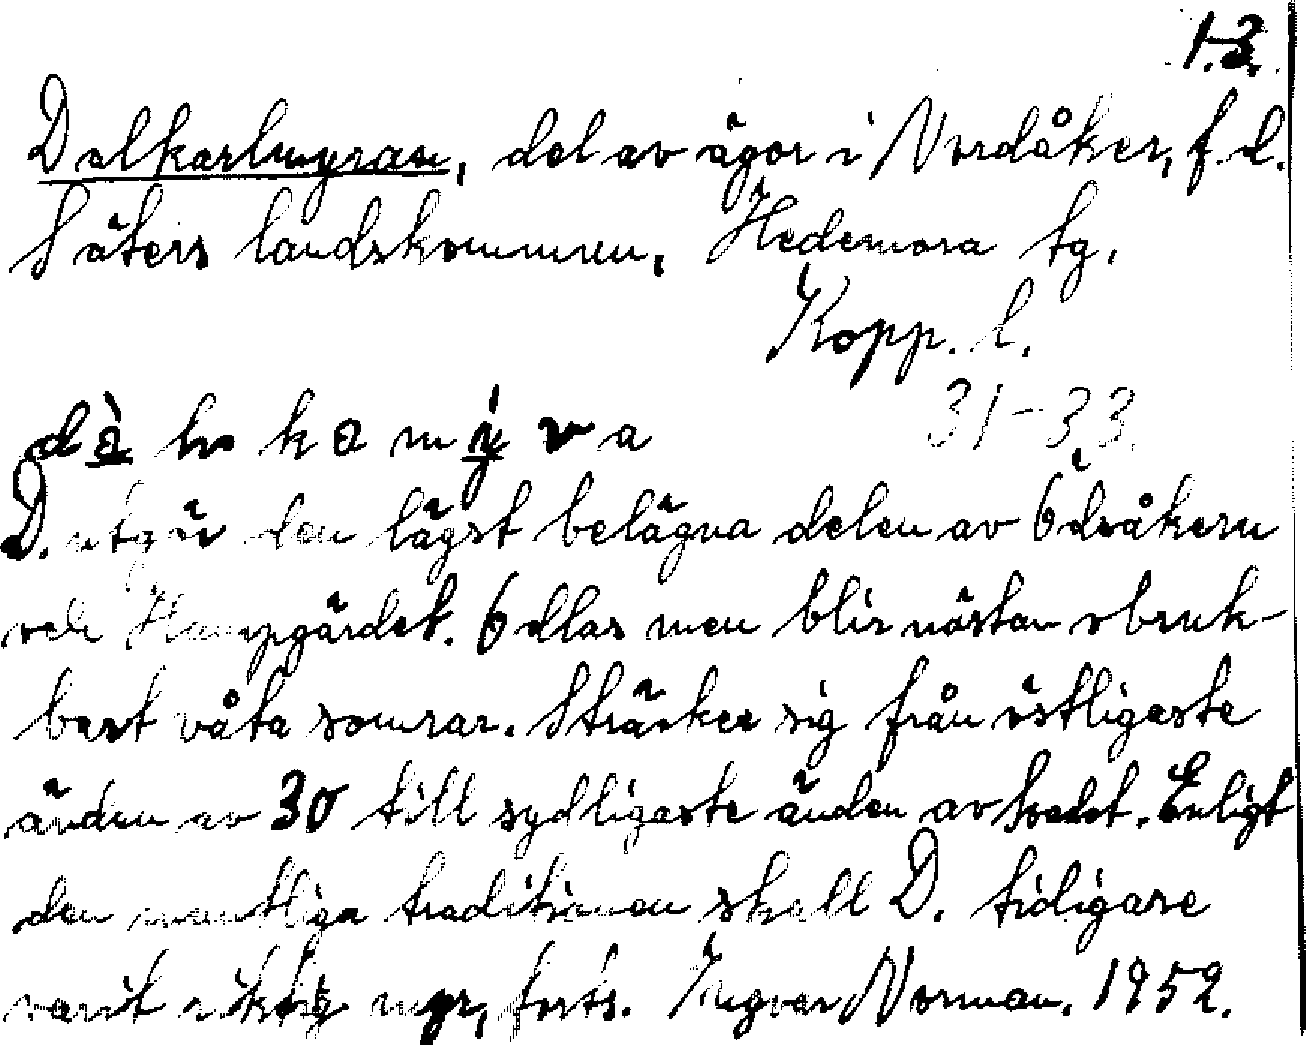 1.3.
Dalkarlmyran, del av ägor i Nordåker, f.d.
Säters landskommun, Hedemora tg.
Kopp. l.
31-33.
D. utgör den lägst belägna delen av Ödsåkern
och Hampgärdet. Odlas men blir nästan obruk-
bart våta somrar. Sträcker sig från östligaste
änden av 30 till sydligaste änden av Svedet. Enligt
den muntliga traditionen skall D. tidigare
varit riktig myr, forts. Ingvar Norman. 1952.